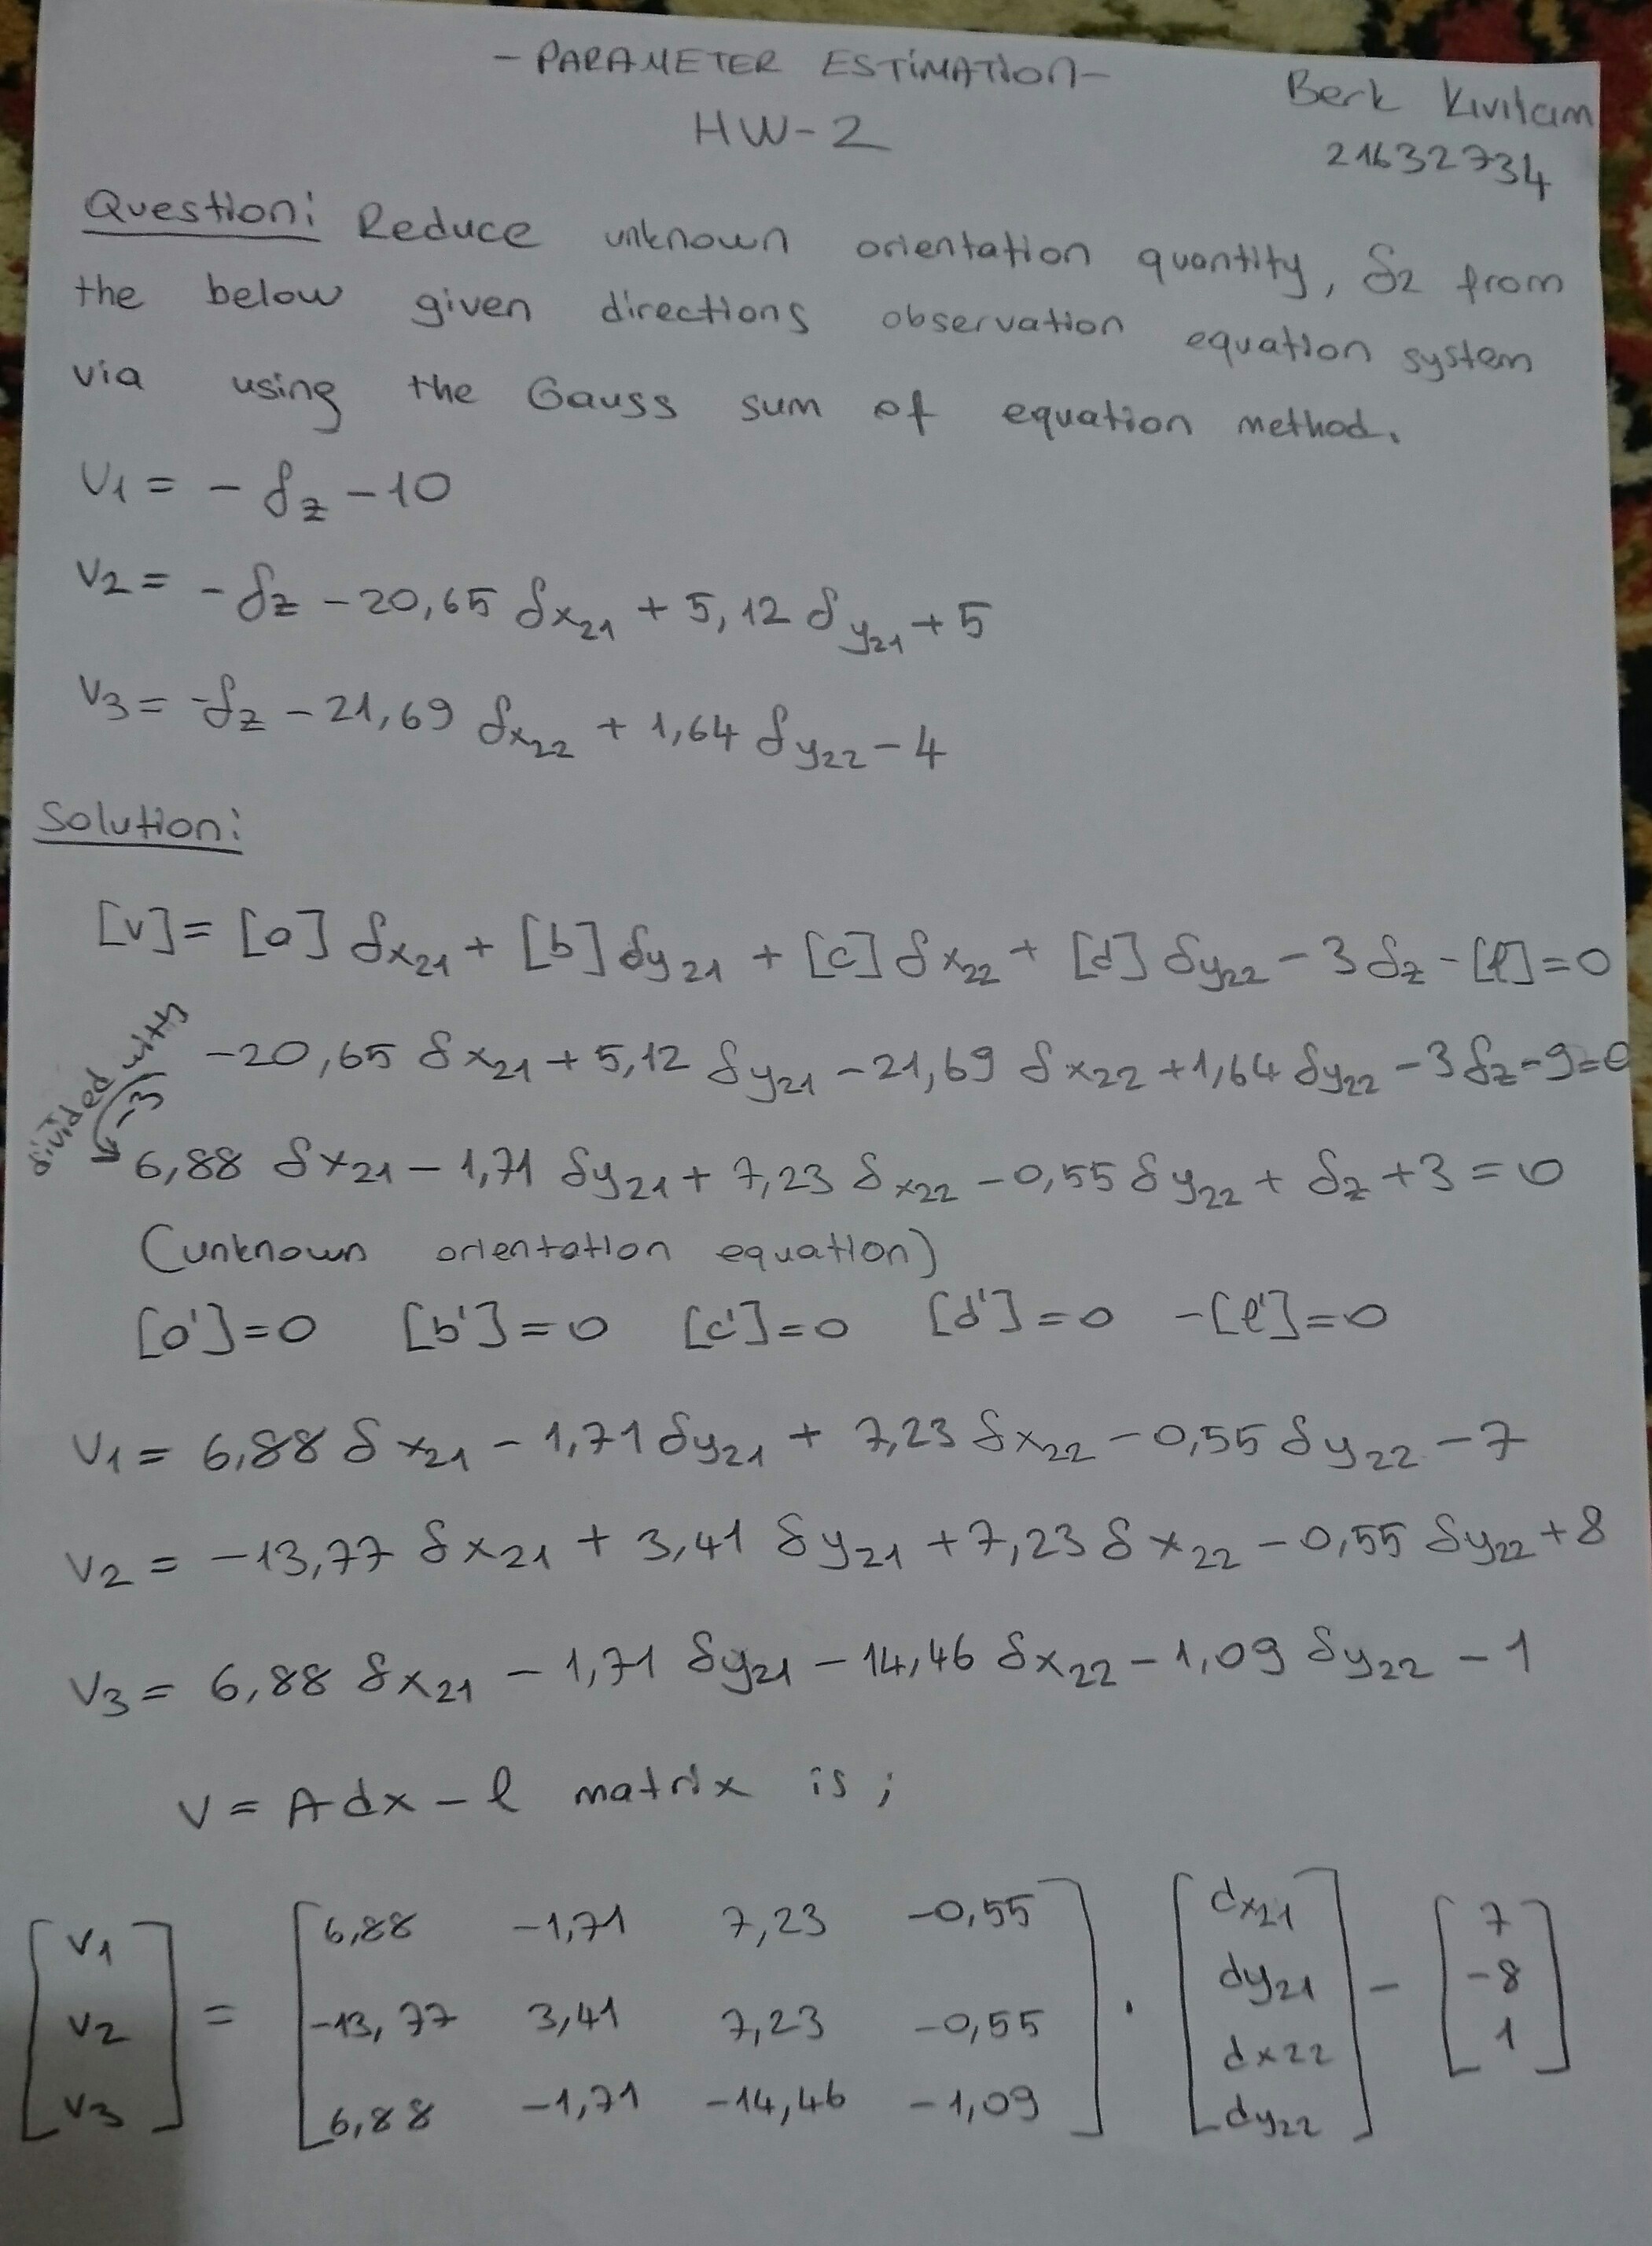 - PARAMETER ESTİMATION -
Berk Kıvılcım
HW-2
21632734
Question: Reduce unknown orientation quantity, δz from
the below given directions observation equation system
via using the Gauss sum of equation method.
V1 = - δz - 10
V2 = - δz - 20,65 δx21 + 5,12 δy21 + 5
V3 = -δz - 21,69 δx22 + 1,64 δy22 - 4
Solution:
[v] = [a] δx21 + [b] δy21 + [c] δx22 + [d] δy22 - 3 δz - [l] = 0
-20,65 δx21 + 5,12 δy21 - 21,69 δx22 + 1,64 δy22 - 3 δz - 9 = 0
divided with -3
6,88 δx21 - 1,71 δy21 + 7,23 δx22 - 0,55 δy22 + δz + 3 = 0
(unknown orientation equation)
[a'] = 0 [b'] = 0 [c'] = 0 [d'] = 0 -[l'] = 0
V1 = 6,88 δx21 - 1,71 δy21 + 7,23 δx22 - 0,55 δy22 - 7
V2 = -13,77 δx21 + 3,41 δy21 + 7,23 δx22 - 0,55 δy22 + 8
V3 = 6,88 δx21 - 1,71 δy21 - 14,46 δx22 - 1,09 δy22 - 1
V = A dx - l matrix is ;
[V1] = [6,88 -1,71 7,23 -0,55] . [dx21] - [7]
[V2] [-13,77 3,41 7,23 -0,55] [dy21] [-8]
[V3] [6,88 -1,71 -14,46 -1,09] [dx22] [1]
[dy22]